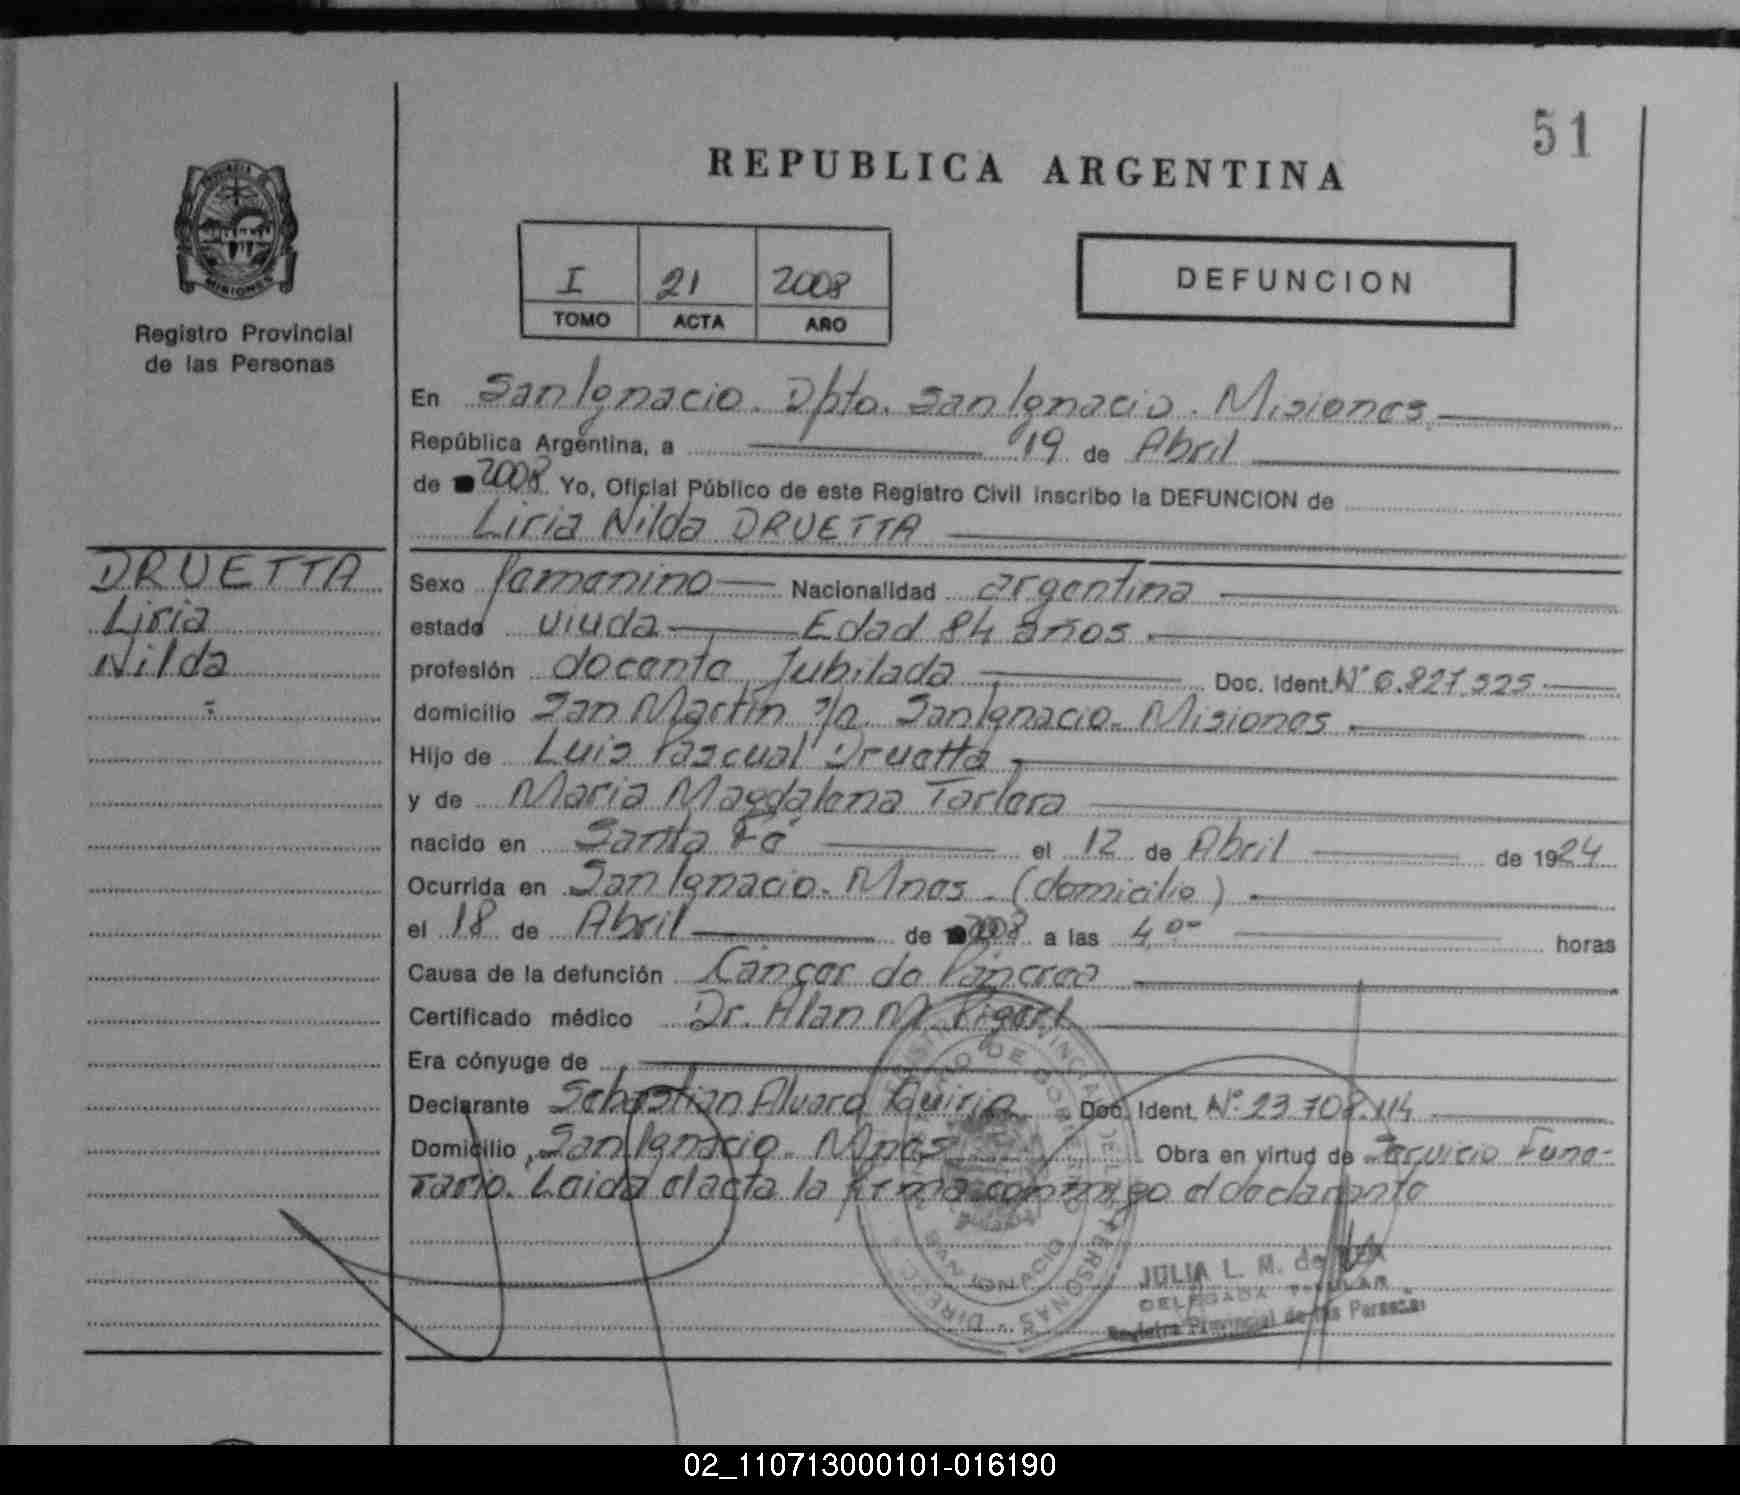 51
REPUBLICA ARGENTINA
PROVINCIA
MISIONES
Registro Provincial
de las Personas
I 21 2008
TOMO ACTA AÑO
DEFUNCION
En San Ignacio. Dpto. San Ignacio. Misiones.
República Argentina, a 19 de Abril
de 2008 Yo, Oficial Público de este Registro Civil inscribo la DEFUNCION de
Liria Nilda DRUETTA
DRUETTA
Liria
Nilda
Sexo femenino Nacionalidad argentina
estado viuda Edad 84 años.
profesión docente Jubilada Doc. Ident. Nº 6.827.525
domicilio San Martín s/n. San Ignacio. Misiones.
Hijo de Luis Pascual Druetta
y de Maria Magdalena Tarlera
nacido en Santa Fé el 12 de Abril de 1924
Ocurrida en San Ignacio. Mnes. (domicilio)
el 18 de Abril de 2008 a las 4,00 horas
Causa de la defunción Cáncer de Páncrea
Certificado médico Dr. Alan M.
Era cónyuge de
Declarante Sebastian Alvaro Doc. Ident. Nº 23.708.114
Domicilio San Ignacio. Mnes Obra en virtud de Servicio Fune-
rario. Leida el acta la firma conmigo el declarante
SAN IGNACIO
JULIA L. M. de
DELEGADA TITULAR
Registro Provincial de las Personas
02_110713000101-016190